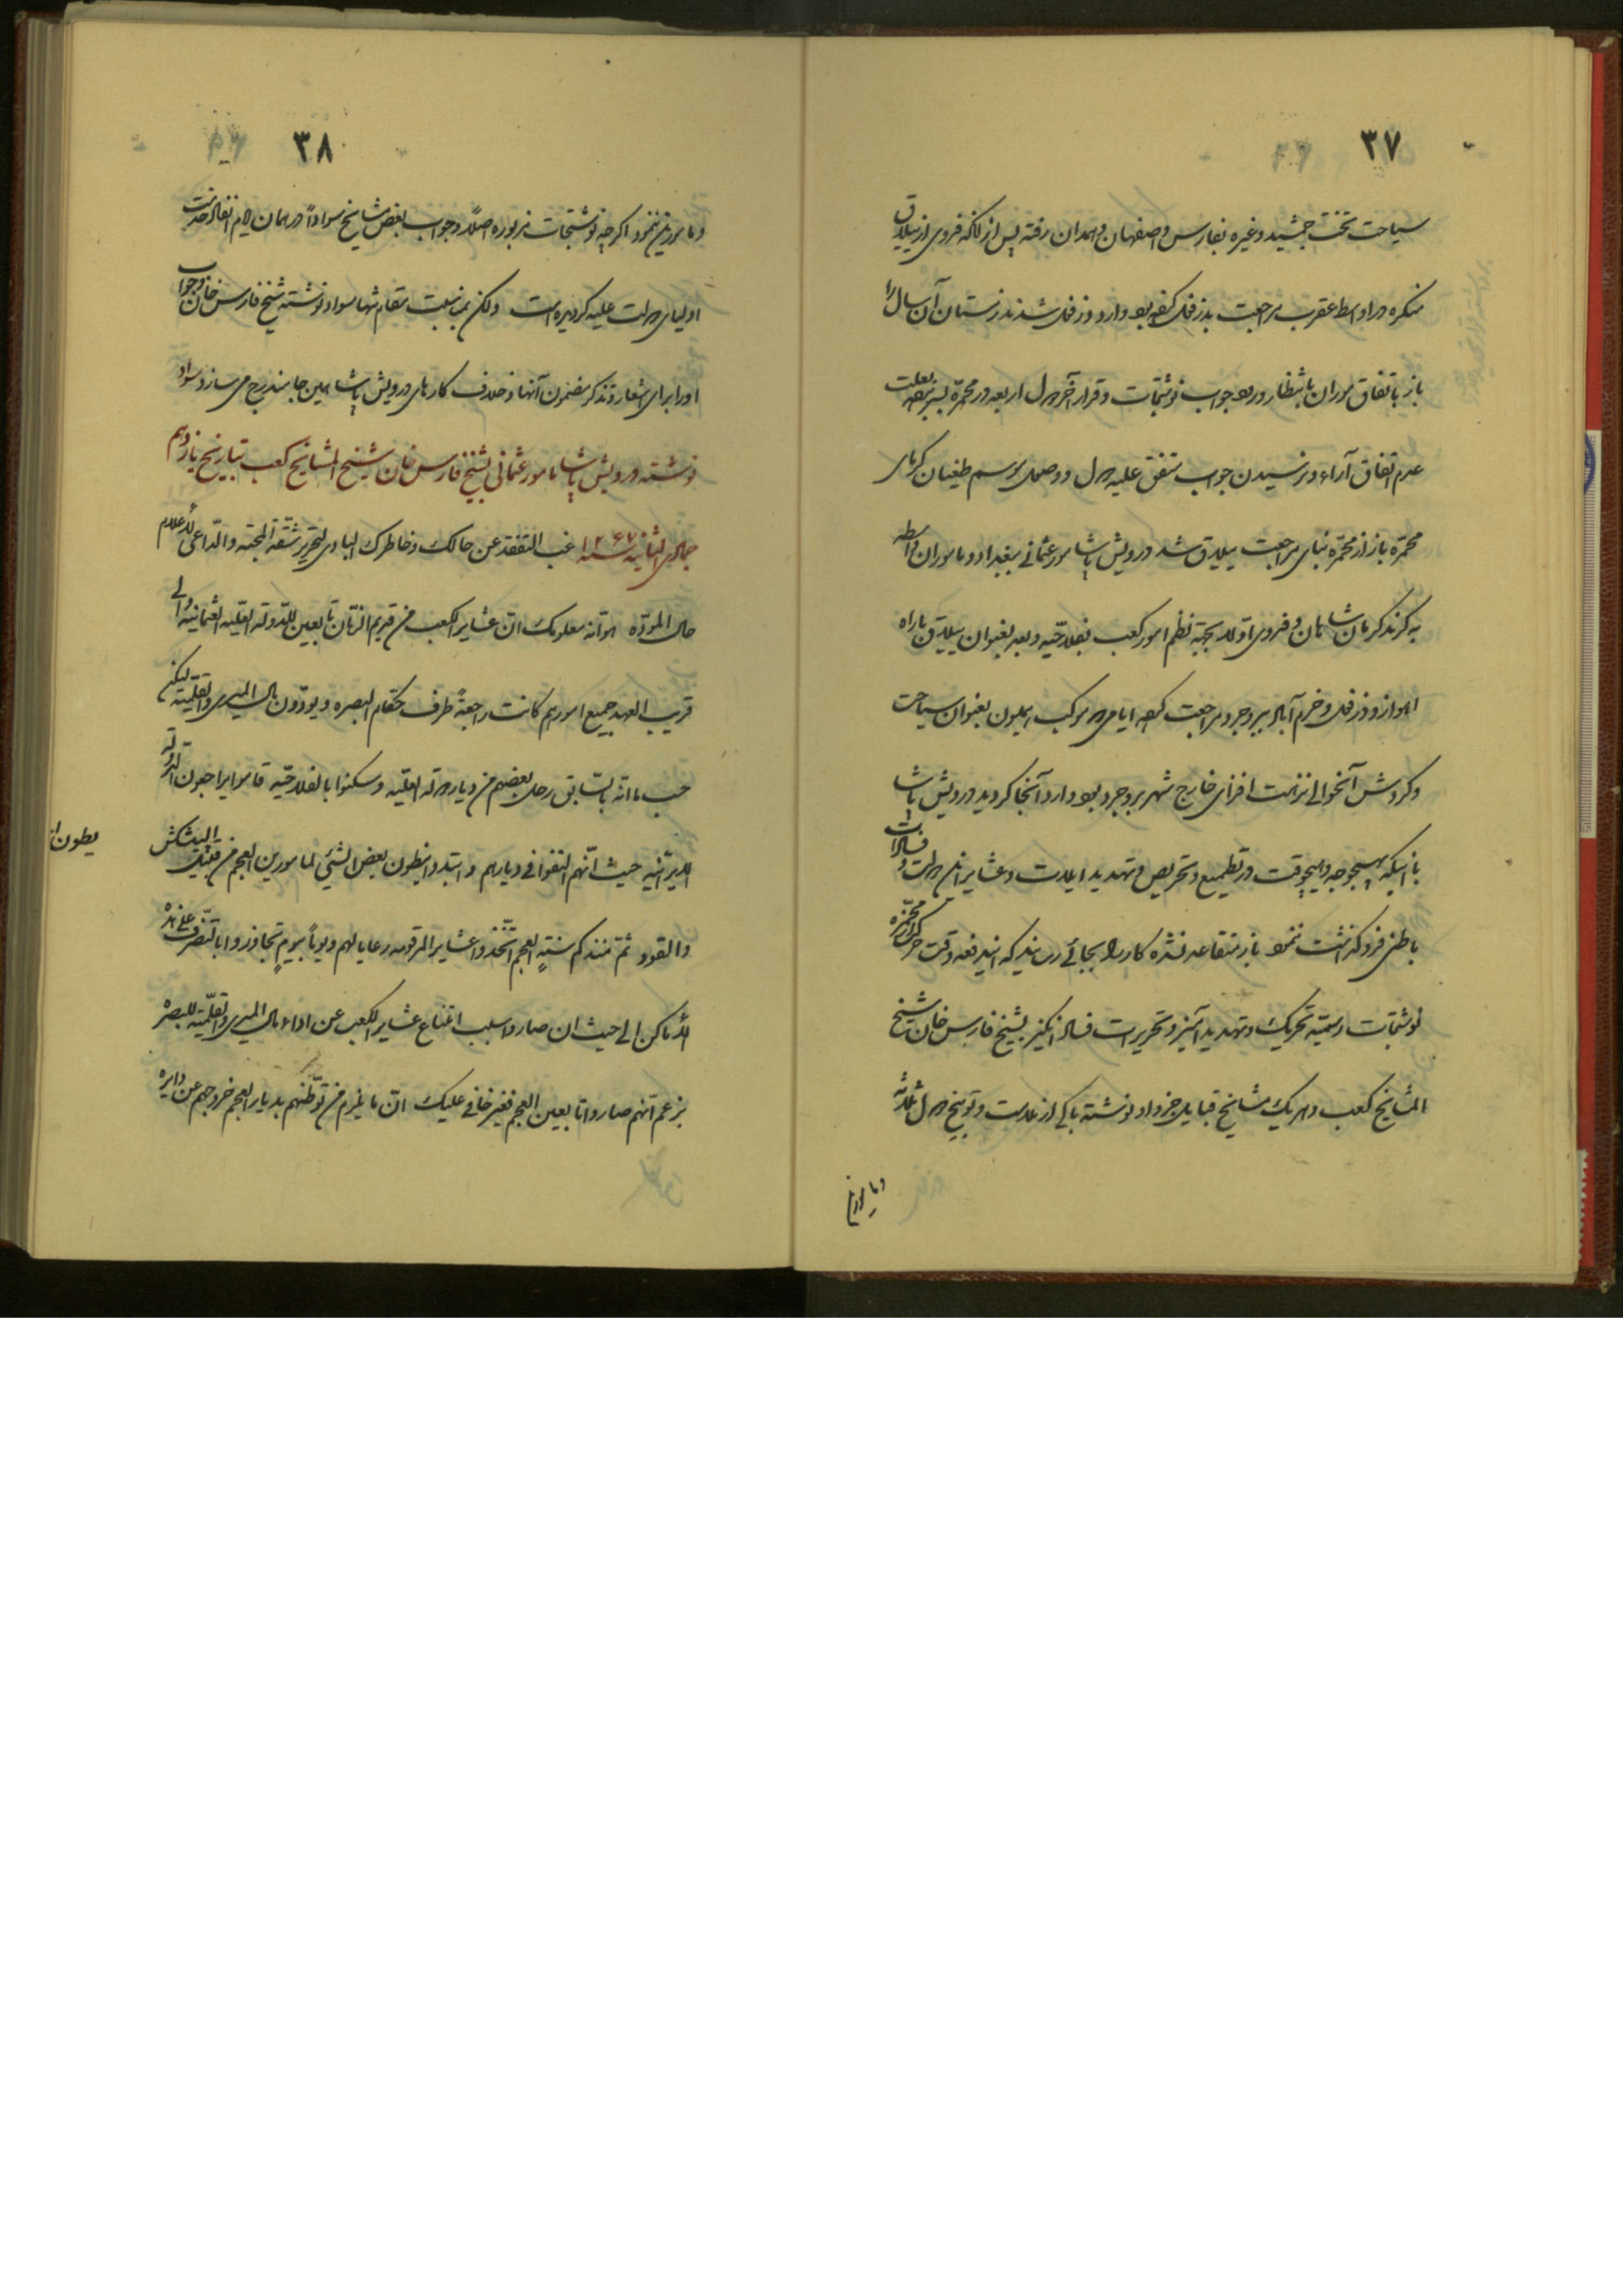 ۳۷
سیاحت تخت جمشید وغیره بفارس و اصفهان و همدان رفته پس از آنکه فروی از ییلاق
منگره در اواسط عقرب مراجعت بدزفول کرده بود وارد دزفول شدند زمستان آن سال را
باز باتفاق موران بانتظار ورود جواب نوشتجات و قرار آخر دول اربعه در محمّره بسر برده بعلت
عدم اتفاق آراء و نرسیدن جواب متفق علیه دول و وصول موسم طغیان گرمای
محمّره باز از محمّره بنای مراجعت ییلاق شد درویش پاشا مامور عثمانی ببغداد و ماموران واسطه
به کرند کرمانشاهان و فروی اوّلا بجهة نظم امور کعب بفلاحیّه و بعد بعنوان ییلاق باز از راه
اهواز و دزفول و خرم آباد ببروجرد مراجعت کرده ایامی در موکب همایون بعنوان سیاحت
و گردش آنحوالی نزاهت افزای خارج شهر بروجرد بود وارد آنجا گردید درویش پاشا
با اینکه بهیچوجه و هیچوقت در تطمیع و تحریص و تهدید ایلات و عشایر این دولت و فسادات
باطنی فروگذاشت ننمود باز متقاعد نشده کار را بجائی رسانید که ایندفعه وقت حرکت از محمّره
نوشتجات رسمیّه تحریک و تهدید آمیز و تحریرات فساد انگیز بشیخ فارس خان شیخ
المشایخ کعب و هر یک مشایخ قبایل جزو او نوشته باکی از ملامت و توبیخ دول ثلاثه
و مامورین
۳۸
و مامورین ننمود اگرچه نوشتجات مزبوره اصلاً و جواب بعض مشایخ سواداً در همان ایام انفاد خدمت
اولیای دولت علیه گردیده است ولکن بمناسبت مقام تنها سواد نوشته شیخ فارس خان و جواب
او را برای اشعار و تذکر مضمون آنها و خلاف کارهای درویش پاشا همین جا مندرج می سازد سواد
نوشته درویش پاشا مامور عثمانی بشیخ فارس خان شیخ المشایخ کعب بتاریخ یازدهم
جمادی الثانیه سنه ۱۲۶۷ غب التفقد عن حالک و خاطرک البادی لتحریر شقّة المحبّه والدّاعی للاعلام
حال المودّه هو انّه معلومک انّ عشایر الکعب من قدیم الزّمان تابعین للدّولة العلّیه العثمانیه والی
قریب العهد جمیع امورهم کانت راجعةً طرف حکّام البصره و یودّون مال المیری والقلّمیّة لیکن
حسب ما انّه بالسّابق رحل بعضهم من دیار دولة العلّیه و سکنوا بالفلاحّیه قاموا یراجعون الدّولة
الایرانیّه حیث انّهم التقوا فی دیارهم و ابتدوا یطون بعض الشّیٔ لمامورین العجم من قبیل البیشکش
یطون
والقود ثمّ منذ کم سنةٍ العجم اتّخذوا عشایر المرقومه رعایا لهم و یوماً بیومٍ تجاوزوا بالتصّرف علی هذه
الاماکن الی حیث ان صاروا سبب امتناع عشایر الکعب عن اداء مال المیری والقلّمیّه للبصره
بزعم انّهم صاروا تابعین العجم فغیر خافی علیک انّ ما یلزم من توطّنهم بدیار العجم خروجهم عن دایره